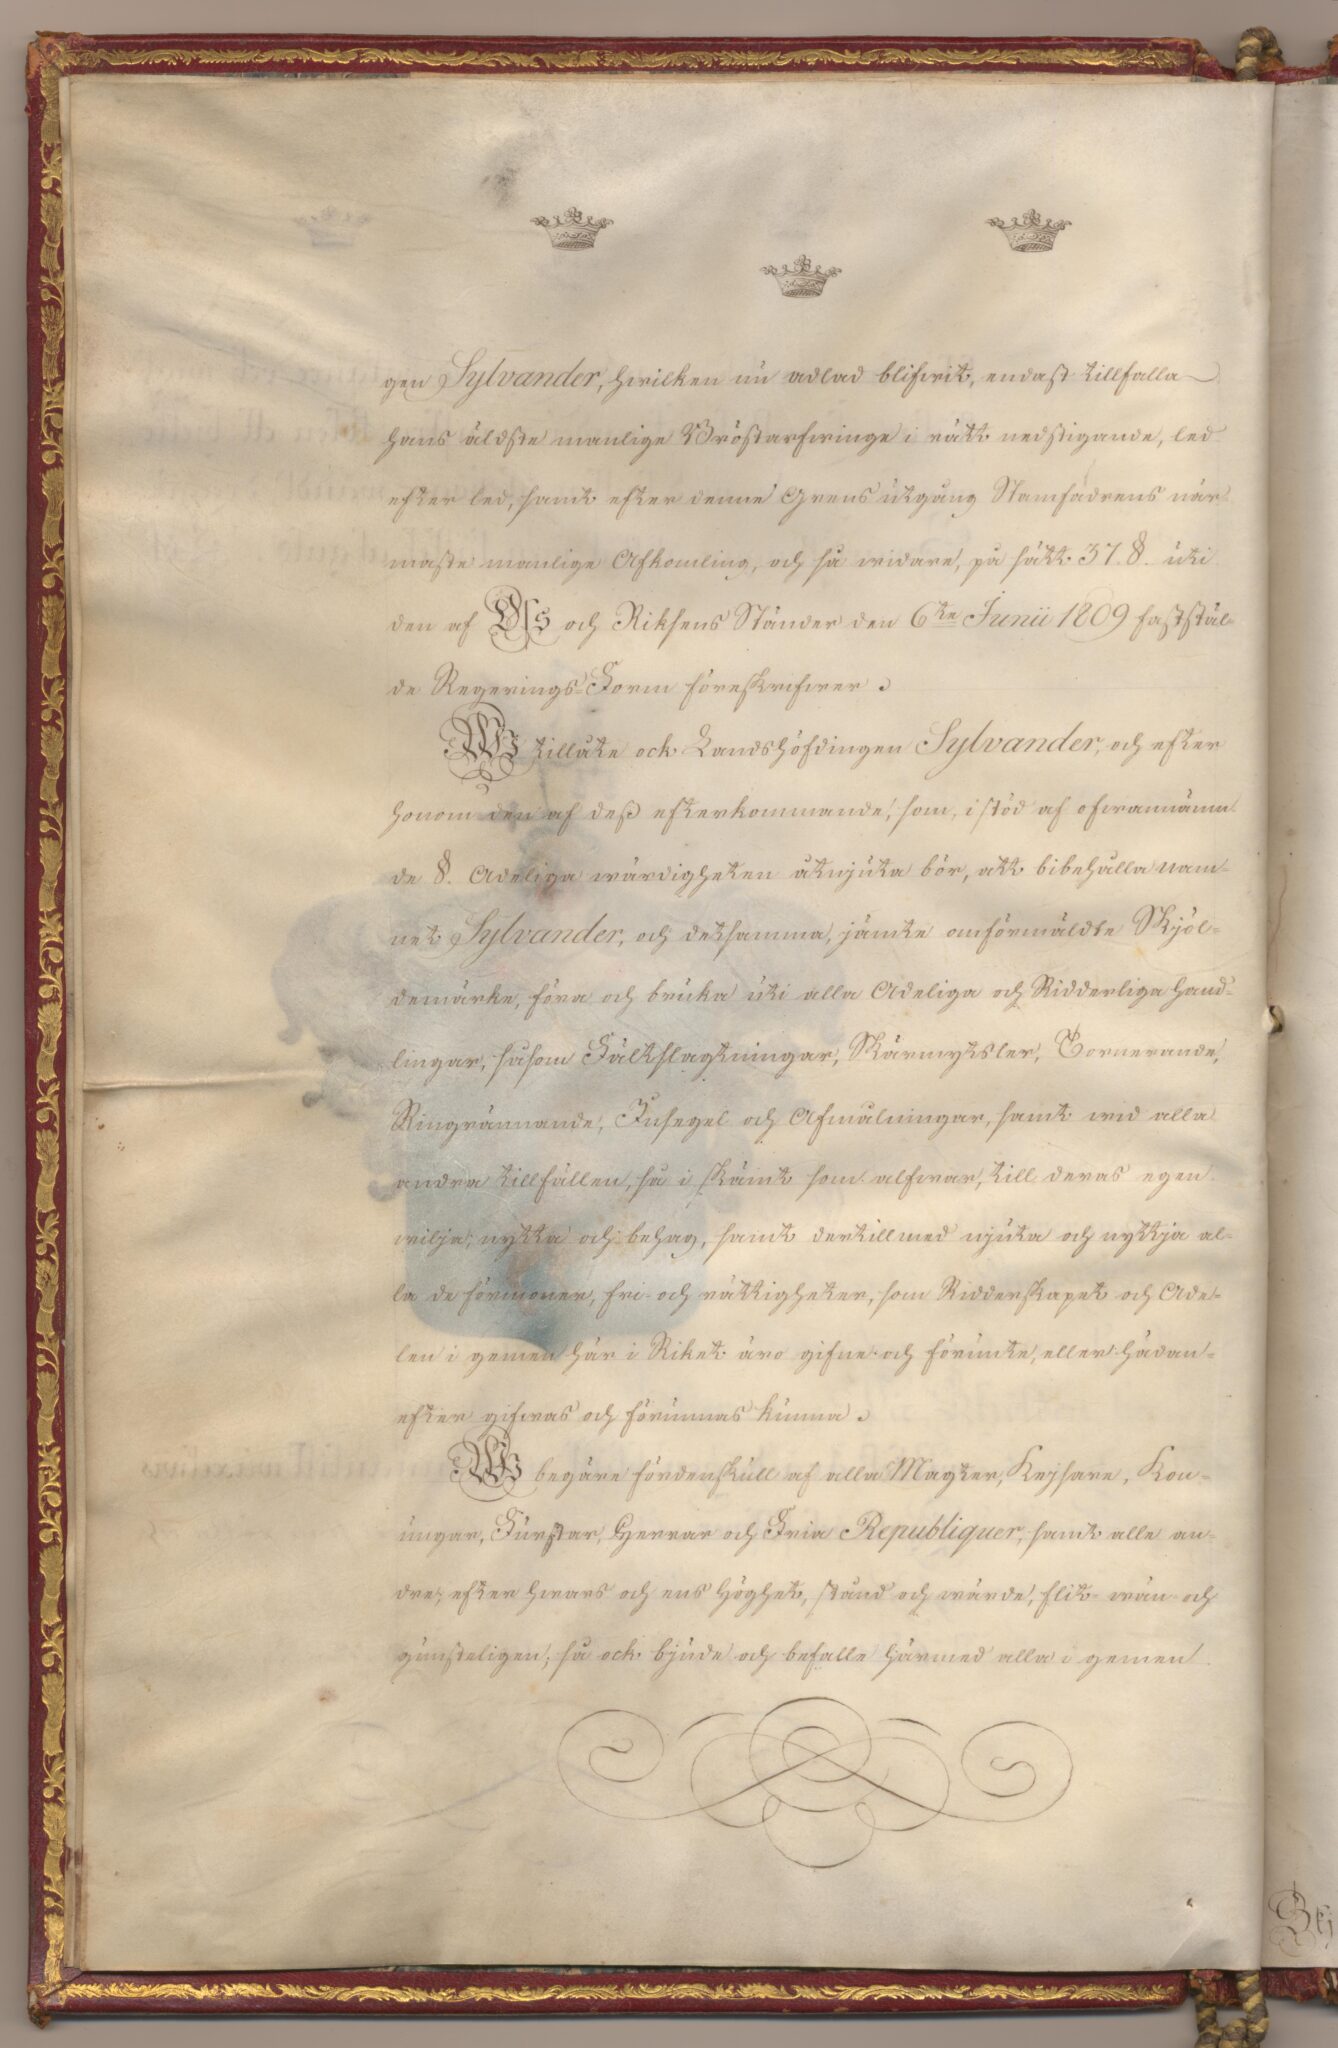 gen Sylvander, hwilken nu adlad blifwit, endast tillfalla
hans äldste manlige Bröstarfwinge i rätt nedstigande, led
efter led, samt efter denne Grens utgång Stamfadrens när-
maste manlige Afkomling, och så widare, på sätt 37. §. uti
den af Oss och Riksens Ständer den 6te Junii 1809 faststäl-
de Regerings-Form föreskrifwer.
Wi tillåte ock Landshöfdingen Sylvander, och efter
honom den af deß efterkommande, som, i stöd af ofwannämn-
de §. Adeliga wärdigheten åtnjuta bör, att bibehålla nam-
net Sylvander, och detsamma, jämte omförmäldte Skjöl-
demärke, föra och bruka uti alla Adeliga och Ridderliga hand-
lingar, såsom Fältslagtningar, Skärmytsler, Tornerande,
Ringrännande, Insegel och Afmålningar, samt wid alla
andra tillfällen, så i skämt som alfwar, till deras egen
wilja, nytta och behag, samt dertillmed njuta och nyttja al-
la de förmoner, fri- och rättigheter, som Ridderskapet och Ade-
len i gemen här i Riket äro gifne och förunte, eller hädan-
efter gifwas och förunnas kunna.
Wi begäre fördenskull af alla Magter, Kejsare, Kon-
ungar, Furstar, Herrar och Fria Republiquer, samt alle an-
dre, efter hwars och ens höghet, stånd och wärde, flit- wän- och
gunsteligen; så ock bjude och befalle härmed alla i gemen